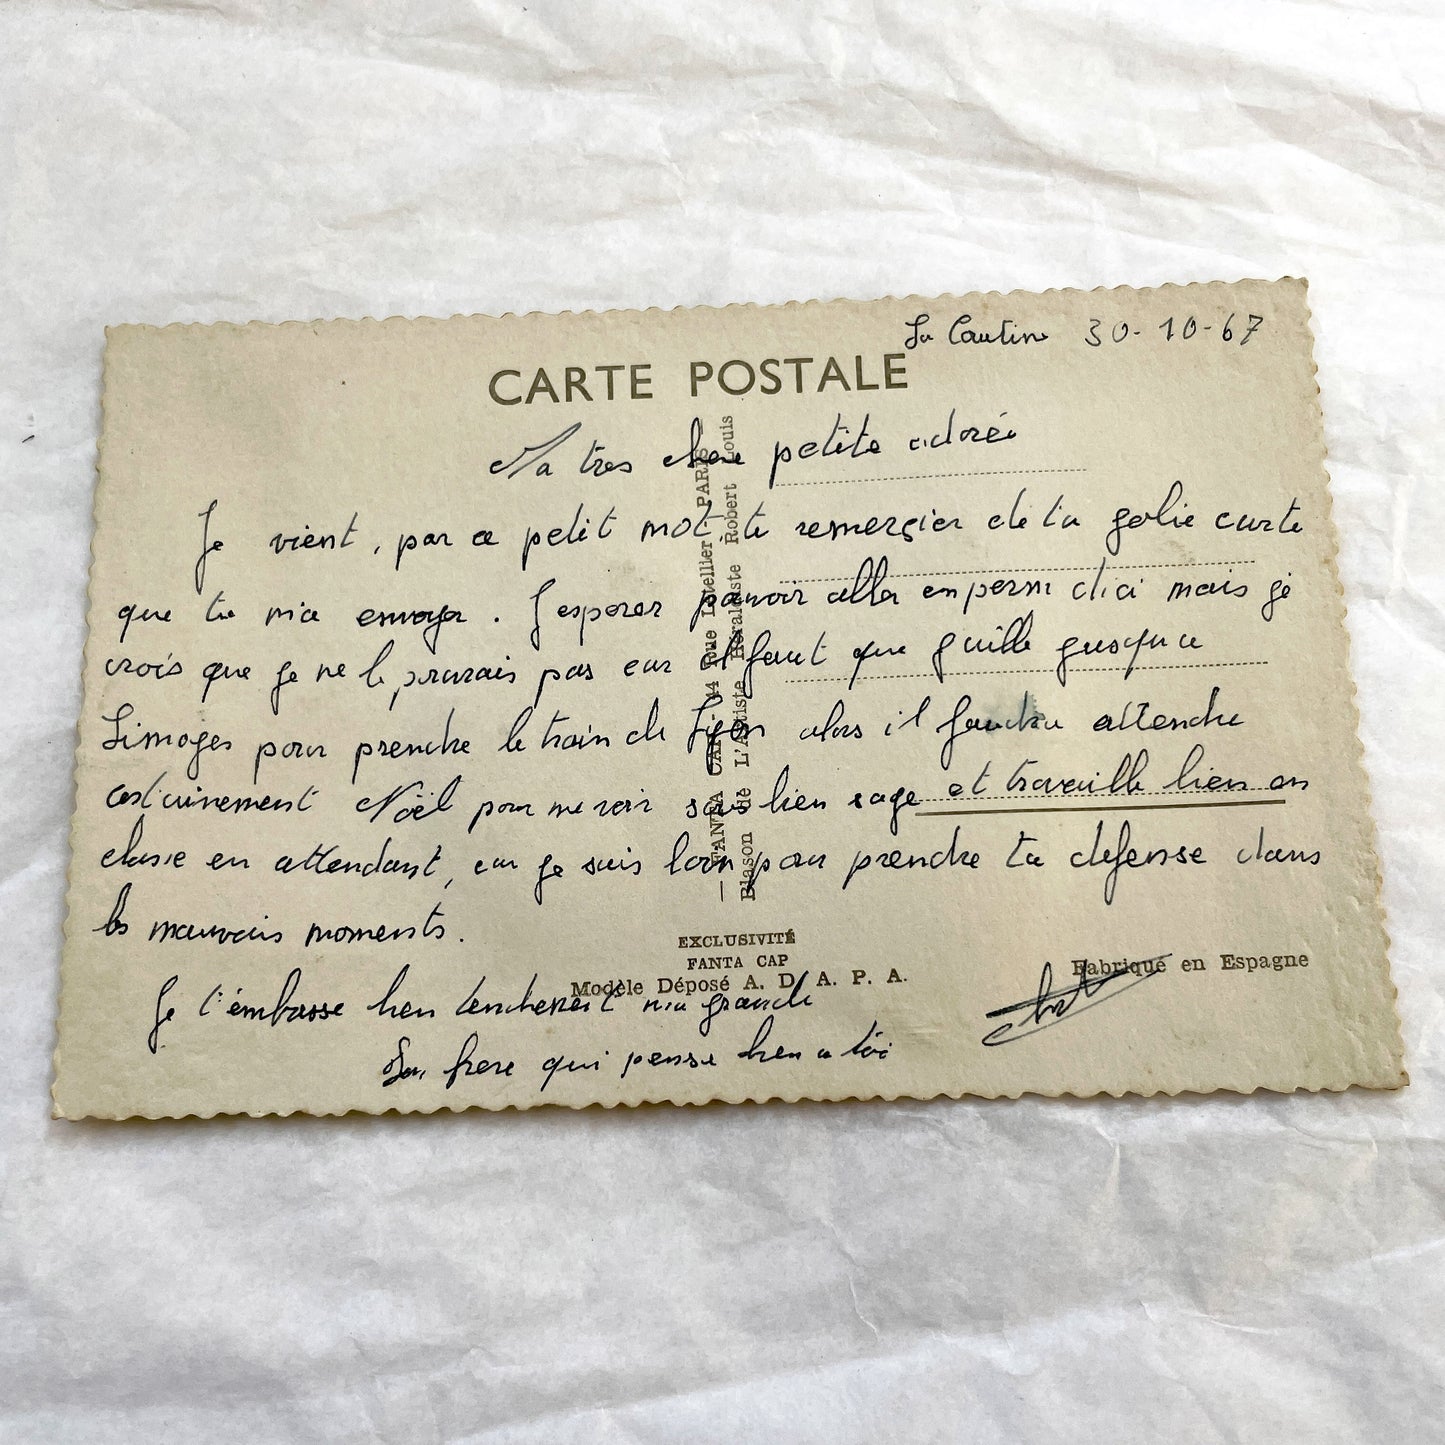 La Courtine 30-10-67
CARTE POSTALE
Ma tres chere petite adorée
Je vient, par ce petit mot te remerçier de ta jolie carte
que tu m'a envoyer. J'esperer pouvoir aller en perm d'ici mais je
crois que je ne le pourais pas car il faut que j'aille jusqu'a
Limoges pour prendre le train de Lyon alors il faudra attendre
certainement Noël pour me voir sois bien sage et travaille bien en
classe en attendant, car je suis loin pour prendre ta defense dans
les mauvais moments.
Je t'embrasse bien tendrement ma grande
Ton frere qui pense bien a toi
— FANTA CAP - 44 rue Letellier - PARIS —
Blason de L'Artiste Héraldiste Robert Louis
EXCLUSIVITÉ
FANTA CAP
Modèle Déposé A. D. A. P. A.
Fabriqué en Espagne